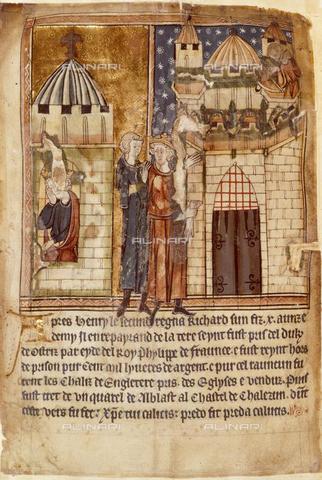 ALINARI
ALINARI
ALINARI
ALINARI
pres Henry le secund regna Richard sun fiz .x. aunz e
demy si en repayrand de la tere seynt fust pris del duk
de Ostriz par eyde del Roy Phylippe de Fraunce e fust reynt hors
de prison pur cent mil liueres de argent. e pur cel raunceun fu
rent les Chaliz de Engleterre pris des Eglyses e venduz. Puis
fust tret de un quarel de Alblast al Chastel de Chalezun. dunt
cest vers fu fet: Xpe tui calicis: predo fit preda calicis.